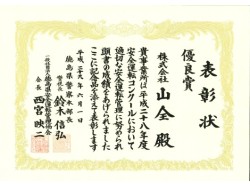 表彰状
優良賞
株式会社
山全殿
貴事業所は平成二十八年度
安全運転コンクールにおいて
適切な安全運転管理に努められ
顕著の成績をあげられました
ここに記念品を添えて表彰します
平成二十九年六月一日
徳島県警察本部長
警視長 鈴木信弘
一般社団法人徳島県安全運転管理協会
会長 西宮映二